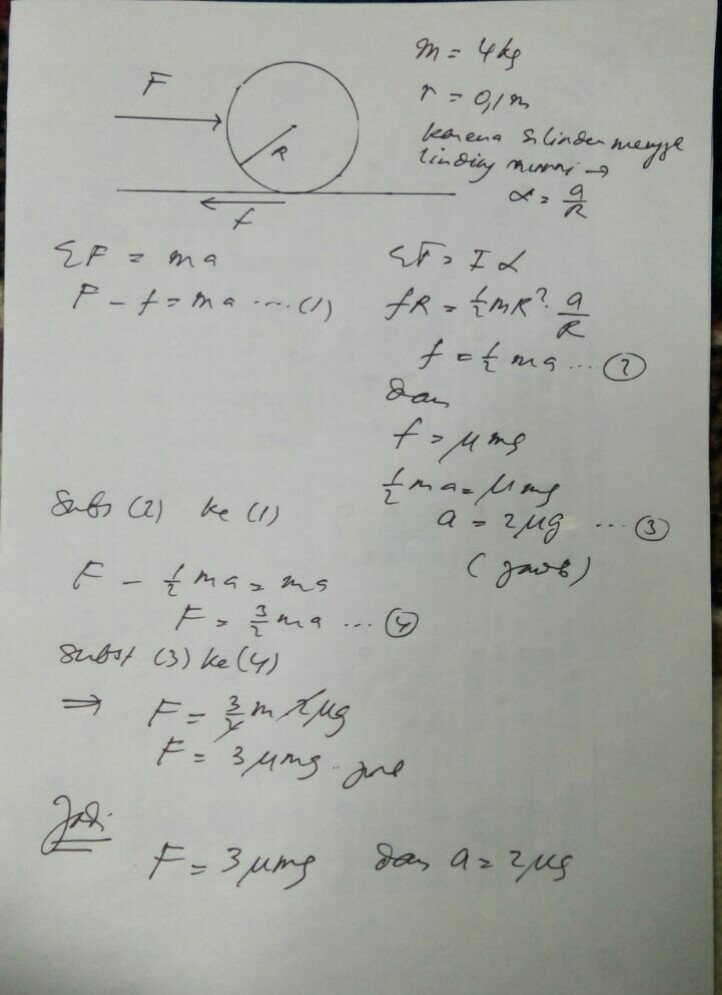 F
R
f
m = 4 kg
r = 0,1 m
karena silinder mengge
linding murni →
α = a/R
ΣF = ma
F - f = ma .... (1)
Στ = I α
fR = 1/2 mR² . a/R
f = 1/2 ma ... (2)
dan
f = μ mg
1/2 ma = μ mg
a = 2μg ... (3)
(jawab)
Subs (2) ke (1)
F - 1/2 ma = ma
F = 3/2 ma ... (4)
Subst (3) ke (4)
⇒ F = 3/2 m 2μg
F = 3 μmg
Jadi
F = 3 μmg dan a = 2 μg